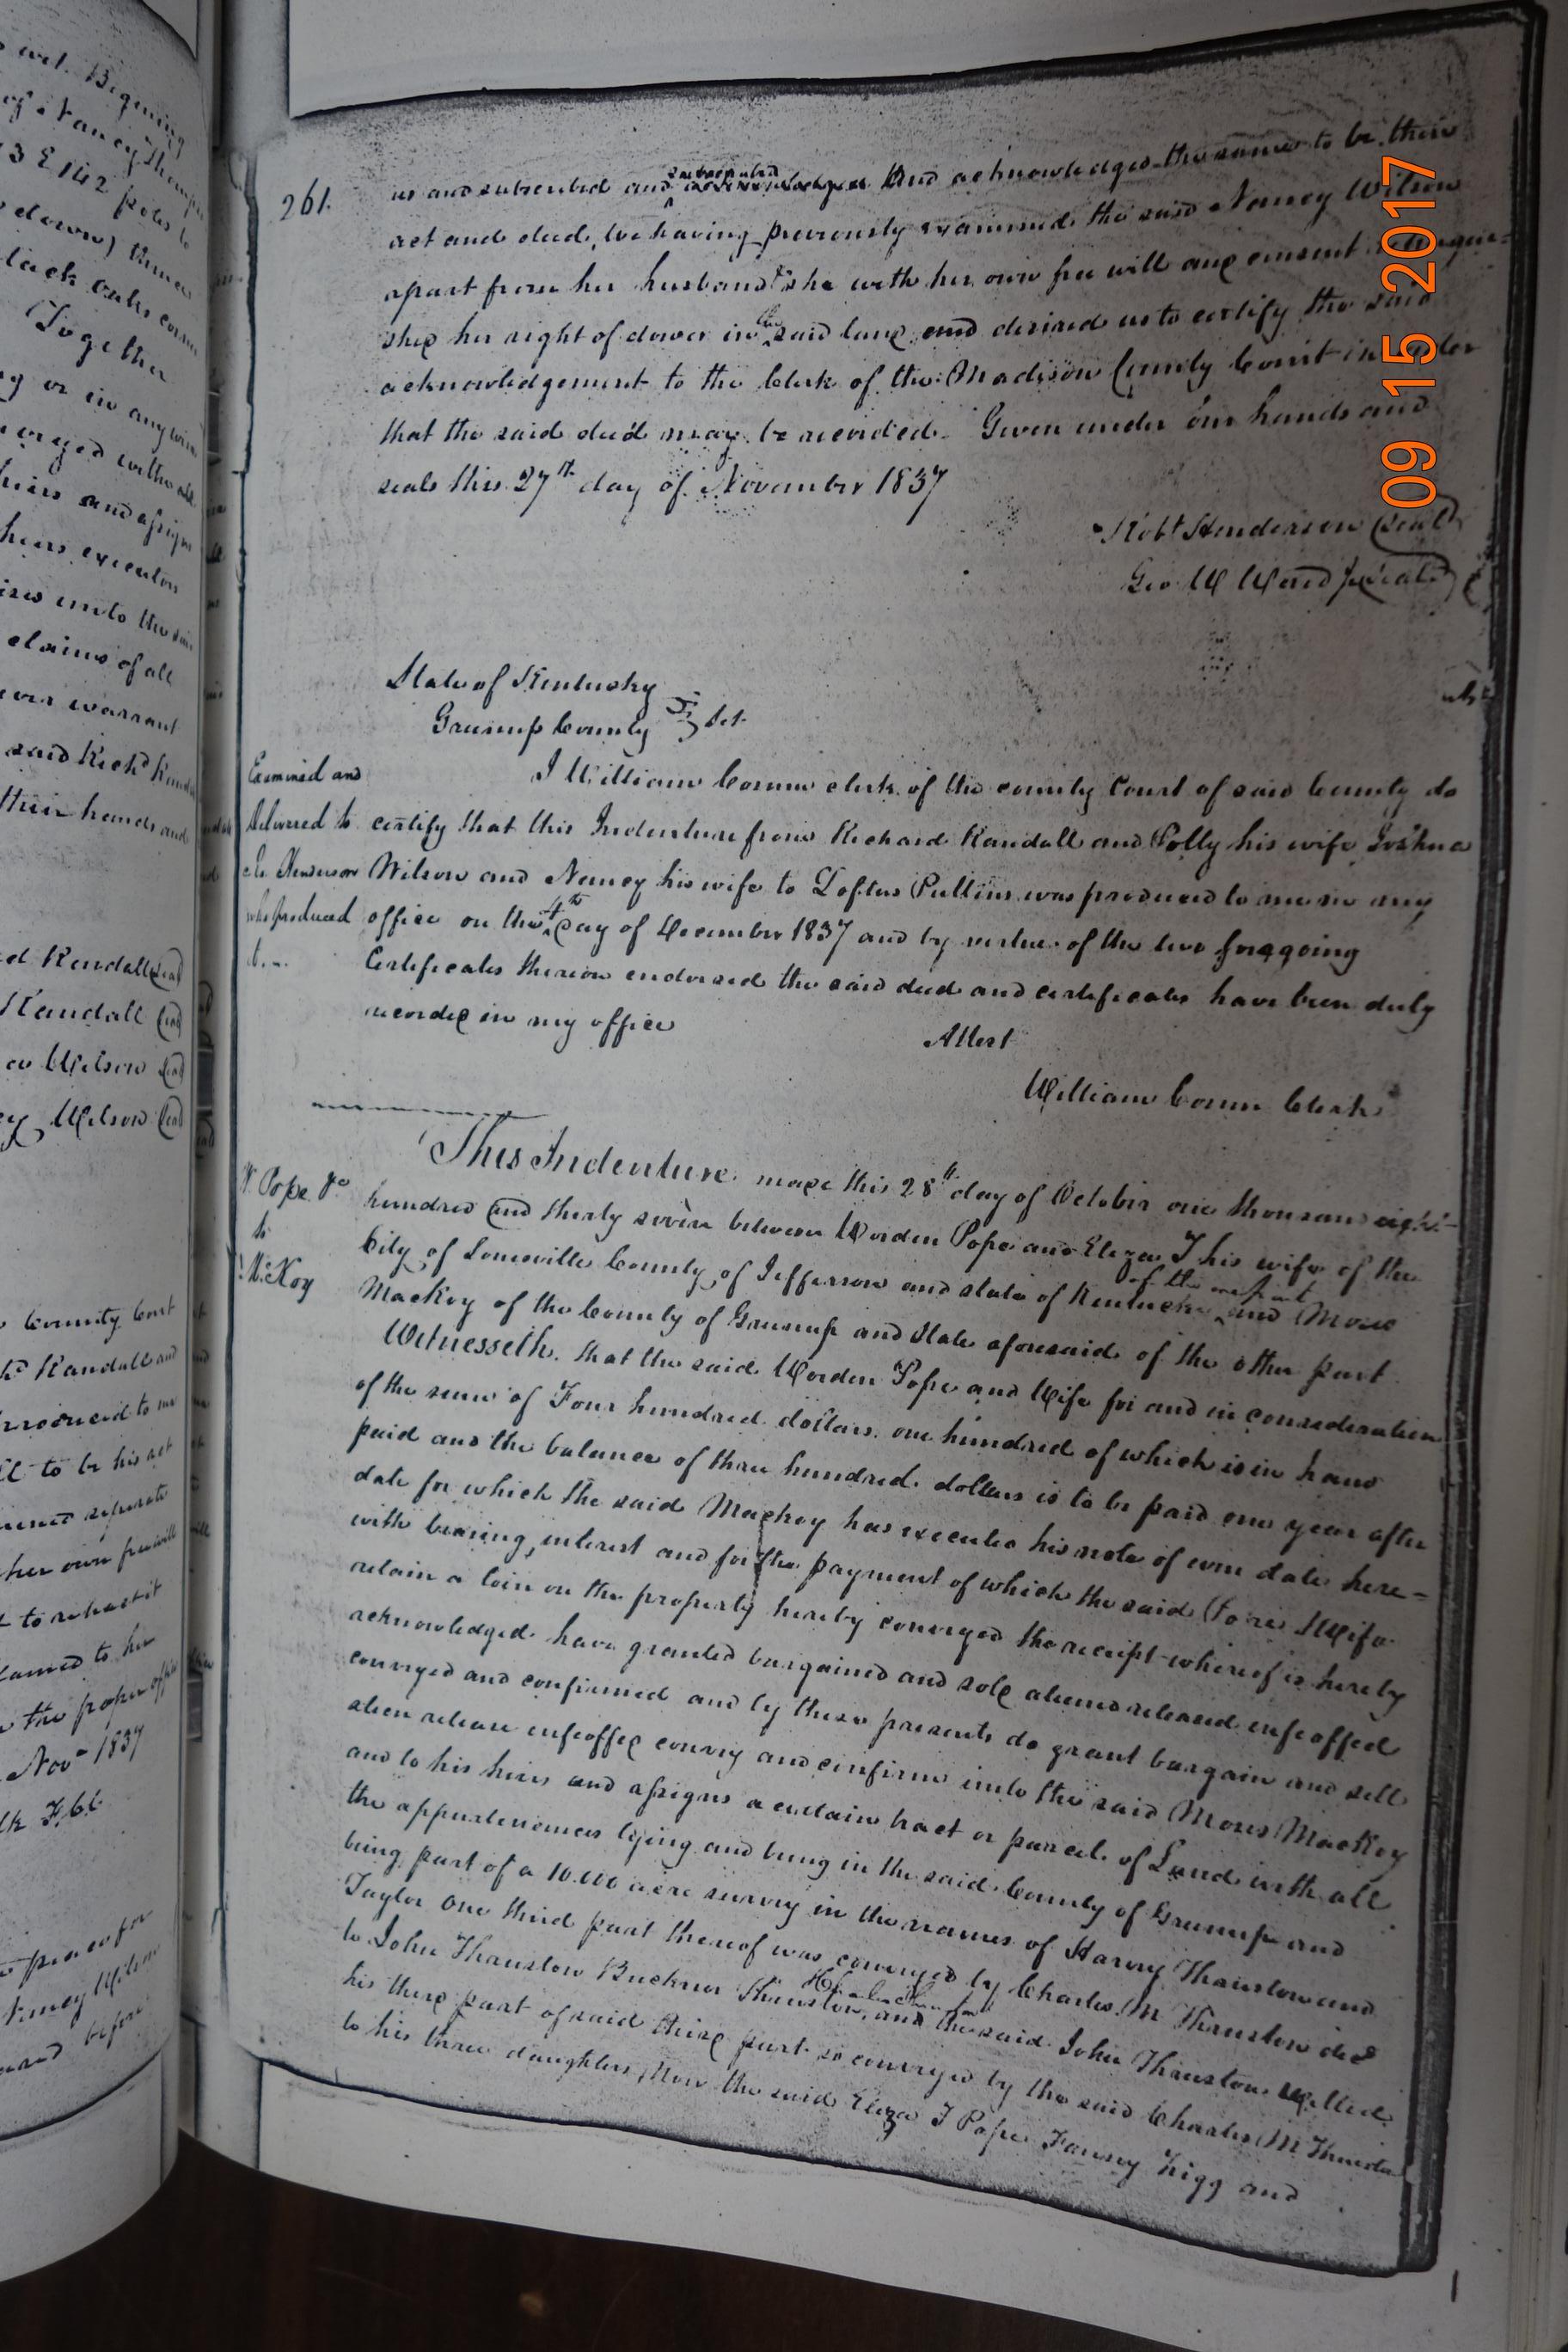 wit. Beginning
of Nancy Thomps
3 E 142 poles to
down) thence
lack oaks corner
Together
g or in any wise
onveyed with all
heirs and assigns
heirs executors
ises unto the said
claims of all
ever warrant
said Richd Randa
their hands and
ed Randall (seal)
Randall (seal)
Wilson (seal)
ey Wilson (seal)
County Court
Randall and
produced to me
to be his act
separate
her own free will
to retract it
to her
the proper office
Nov 1837
261.
us and subscribed and acknowledged the same to be their
act and deed, we having previously examined the said Nancy Wilson
apart from her husband & she with her own free will and consent relinqui=
shed her right of dower in the said land and desired us to certify the said
acknowledgement to the Clerk of the Madison County Court in order
that the said deed may be recorded. Given under our hands and
seals this 27th day of November 1837
Robt Henderson (Seal)
Geo W Ward (Seal)
State of Kentucky
Greenup County } Sct.
I William Corum clerk of the county Court of said County do
certify that this Indenture from Richard Randall and Polly his wife Joshua
Wilson and Nancy his wife to Loftus Pullins was produced to me in my
office on the 4th day of December 1837 and by virtue of the two foregoing
Certificates thereon endorsed the said deed and certificates have been duly
recorded in my office
Attest
William Corum Clerk
Examined and
delivered to
who produced
W. Pope &c
to
M. McKoy
This Indenture made this 28th day of October one thousand eight
hundred and thirty seven between Worden Pope and Eliza T his wife of the
City of Louisville County of Jefferson and state of Kentucky of the one part and Moses
Mackoy of the County of Greenup and State aforesaid of the other part
Witnesseth, that the said Worden Pope and Wife for and in consideration
of the sum of Four hundred dollars, one hundred of which is in hand
paid and the balance of three hundred dollars is to be paid one year after
date for which the said Mackoy has executed his note of even date here=
with bearing interest and for the payment of which the said Pope & Wife
retain a lein on the property hereby conveyed the receipt whereof is hereby
acknowledged have granted bargained and sold aliened released enfeoffed
conveyed and confirmed and by these presents do grant bargain and sell
alien release enfeoffed convey and confirm unto the said Moses Mackoy
and to his heirs and assigns a certain tract or parcel of Land with all
the appurtenances lying and being in the said County of Greenup and
being part of a 10.000 acre survey in the names of Harvey Thruston and
Taylor One third part thereof was conveyed by Charles M Thruston decd
to John Thruston Buckner Thruston, and the said John Thruston Willed
his third part of said third part so conveyed by the said Charles M. Thruston
to his three daughters, Now the said Eliza T Pope Fanny Trigg and
09 15 2017